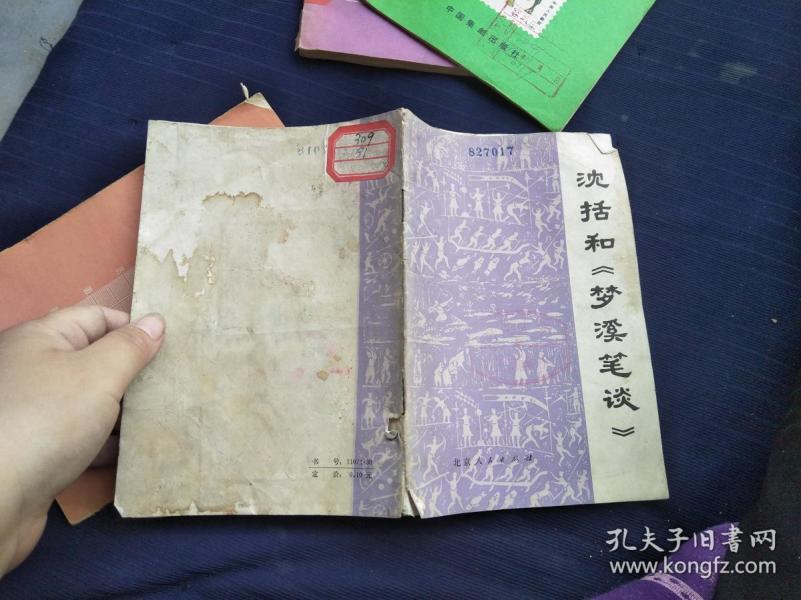 中国集邮出版社
309
51
827017
沈括和《梦溪笔谈》
北京人民出版社
书 号：
定 价：0.10元
孔夫子旧书网
www.kongfz.com